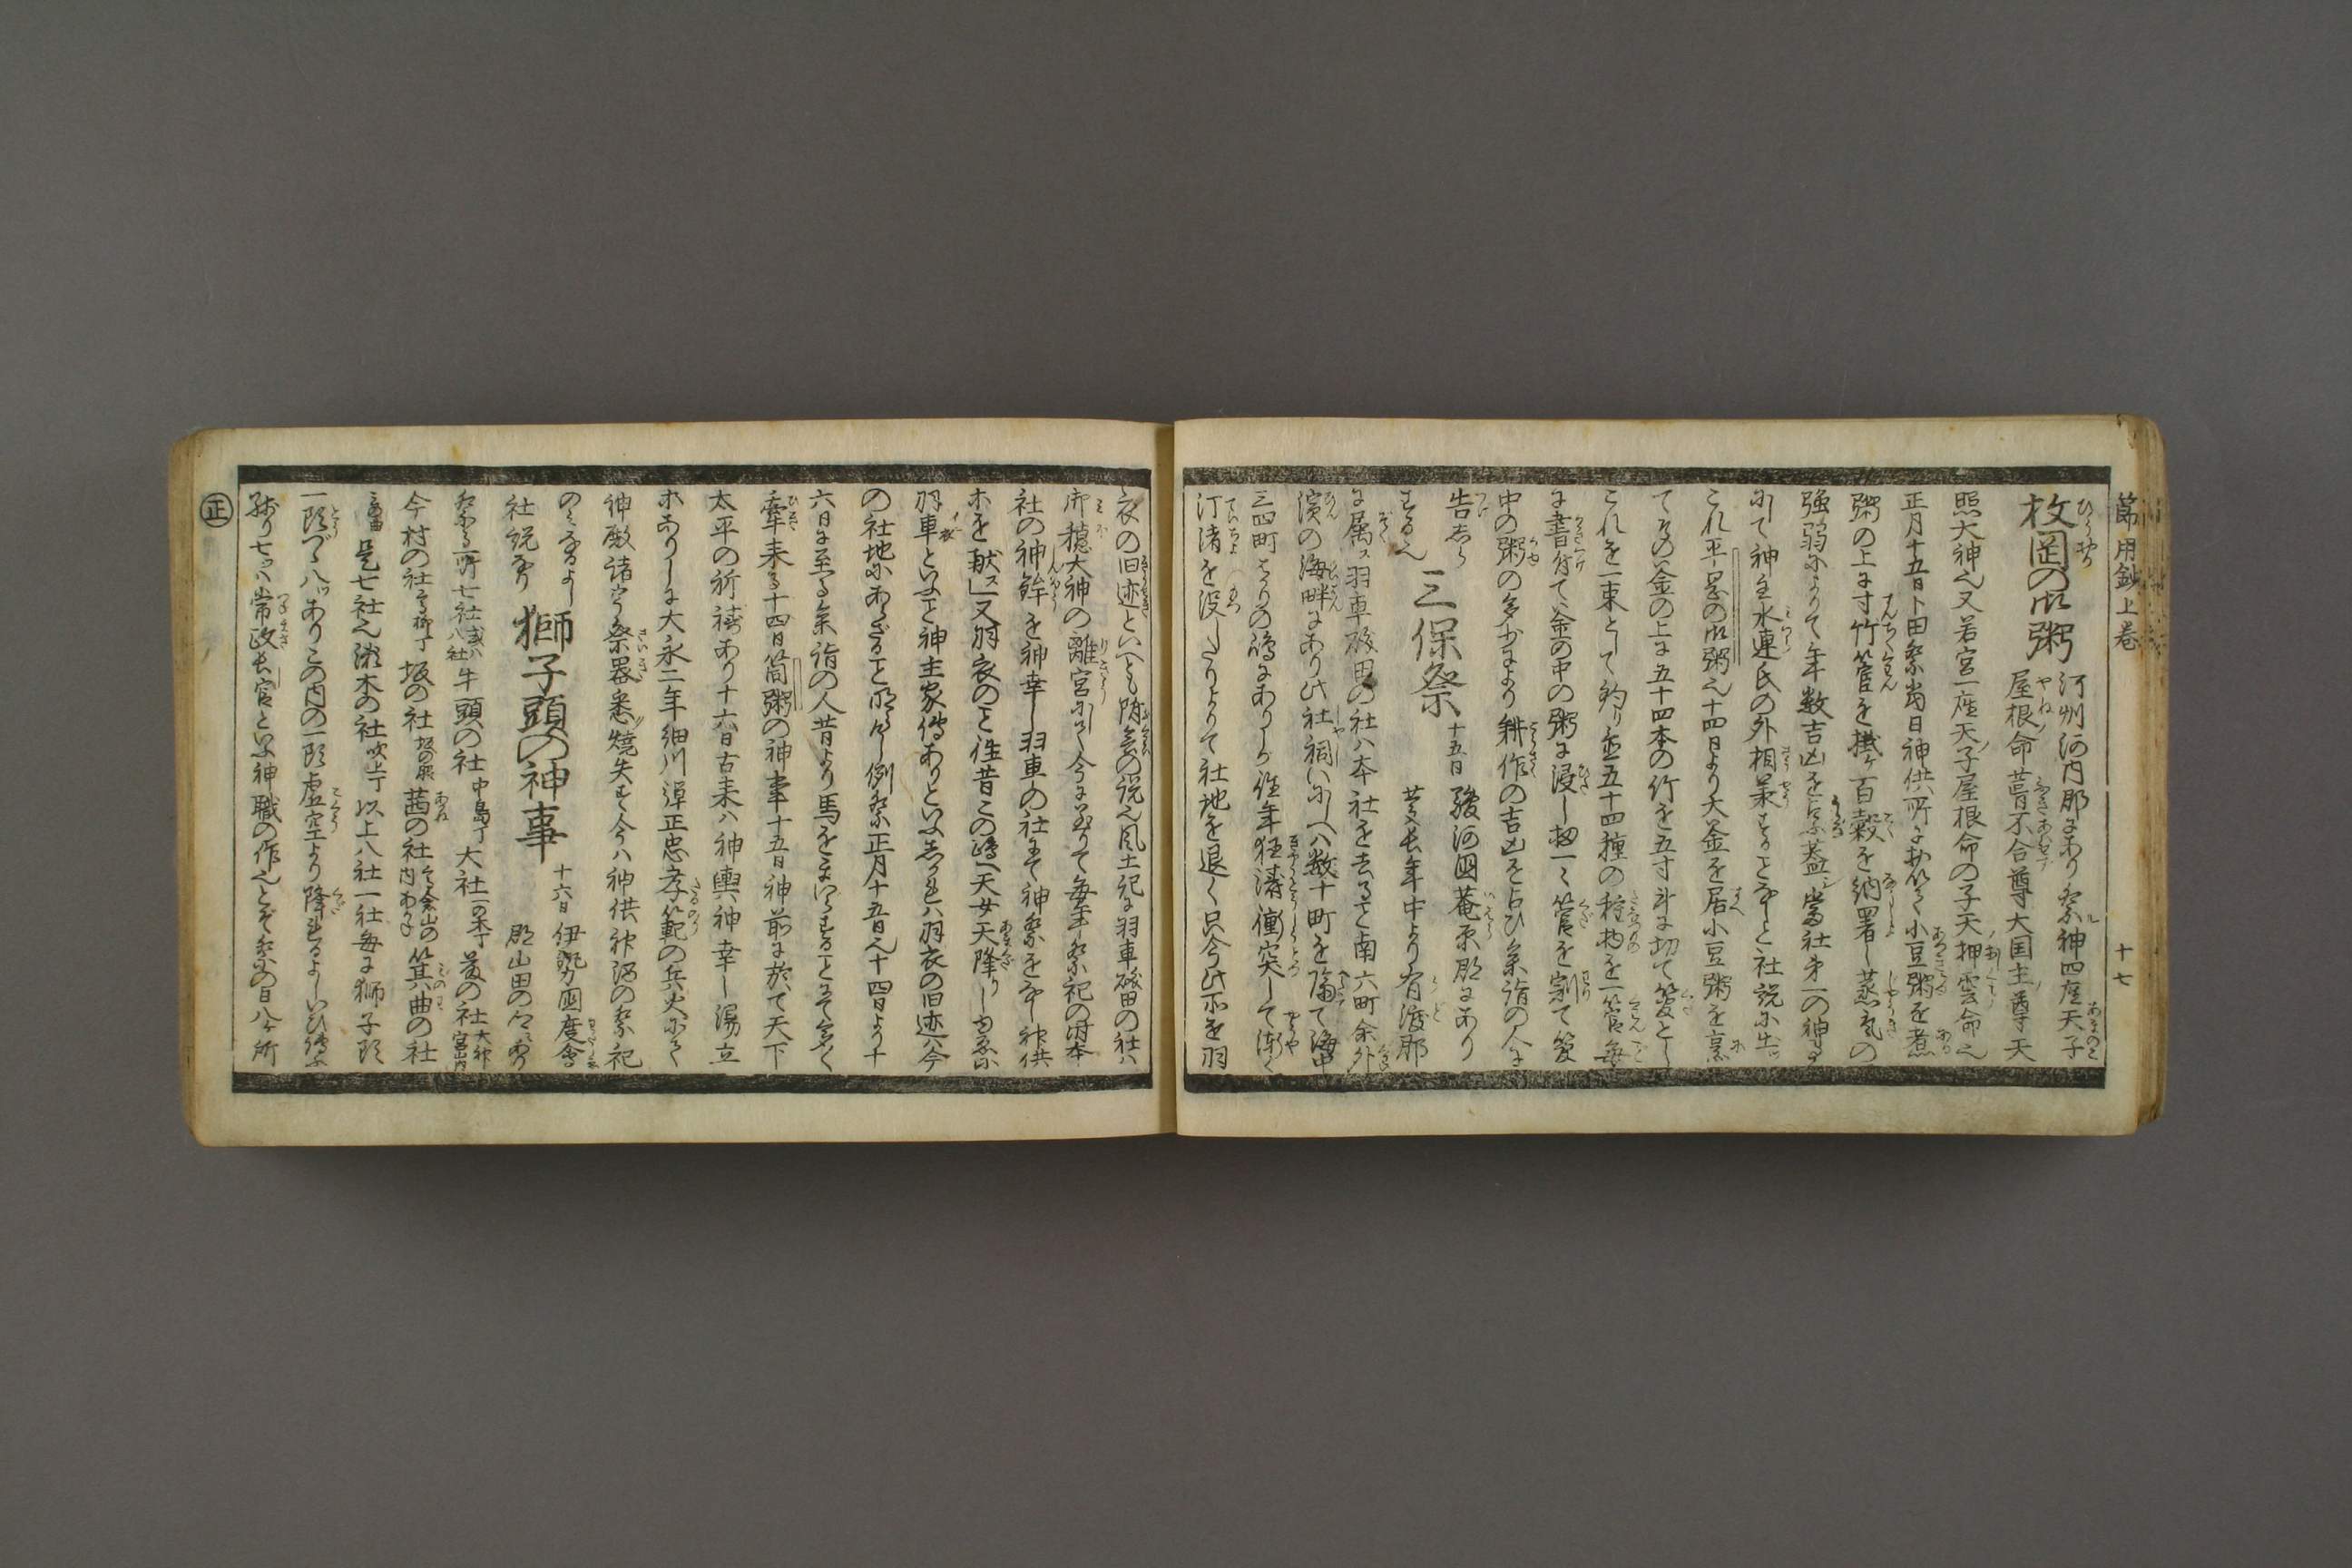 節用鈔上巻
十七
枚岡の御粥
河州河内郡にあり祭ル神四座天子
屋根ノ命葺不合尊大国主ノ尊天
照大神也又若宮一座天子屋根命の子天押雲命也
正月十五日卜田祭当日神供所に於て小豆粥を煮
粥の上に寸竹管を掛ケ百穀を納署し蒸気の
強弱によりて年数吉凶を占ふ蓋シ当社第一の神事
にて神主水連氏の外相美することなしと社説に出ツ
これ平岡の御粥也十四日より大釜を居小豆粥を烹
てその釜の上に五十四本の竹を五寸斗に切て笶とし
これを一束として釣リ並五十四種の種物を一管毎
に書付て釜の中の粥に浸し扨一々管を割て笶
中の粥の多少により耕作の吉凶を占ひ参詣の人に
告しら
する也
三保祭
十五日
駿河国菴原郡にあり
芝長年中より有渡郡
に属ス羽車磯田の社ハ本社を去ること南六町余外
濱の海畔にあり此社祠いにしへハ数十町を隔て海中
三四町ばかりの嶋にありしが往年狂濤衝突して漸く
汀渚を没したりよりて社地を退く只今此所を羽
衣の旧迹といへとも附会の説也風土記に羽車磯田の社ハ
御穂大神の離宮にして今に至りて毎年祭祀の時本
社の神鉾を神幸し羽車の社にて神祭をなし神供
ホを献ス」又羽衣のこと往昔この嶋へ天女天降りし
羽車といふこと神主家伝ありといふしかれハ羽衣の旧迹ハ今
の社地にあらざること明らけし例祭正月十五日也十四日より十
六日に至る参詣の人昔より馬をまいらすることにて多く
牽来る十四日筒粥の神事十五日神前に於て天下
太平の祈祷あり十六日古来ハ神輿神幸し湯立
ホありしに大永二年細川淳正忠孝範の兵火にて
神殿諸宇祭器悉ク焼失す今ハ神供神酒の祭祀
のミなるよし
社説なり
獅子頭の神事
十六日
伊勢国度会
郡山田の
祭る所七社或ハ八社牛頭の社中島丁大社一の木丁
今村の社
坂の社
茜の社
箕曲の社
是七社也
木の社吹上丁以上八社一社毎に獅子頭
一頭づゝ八ツありこの内の一頭虚空より降れるよしいひ伝ふ
残り七ツハ常政長官といふ神職の作也とぞ祭の日八ケ所
正